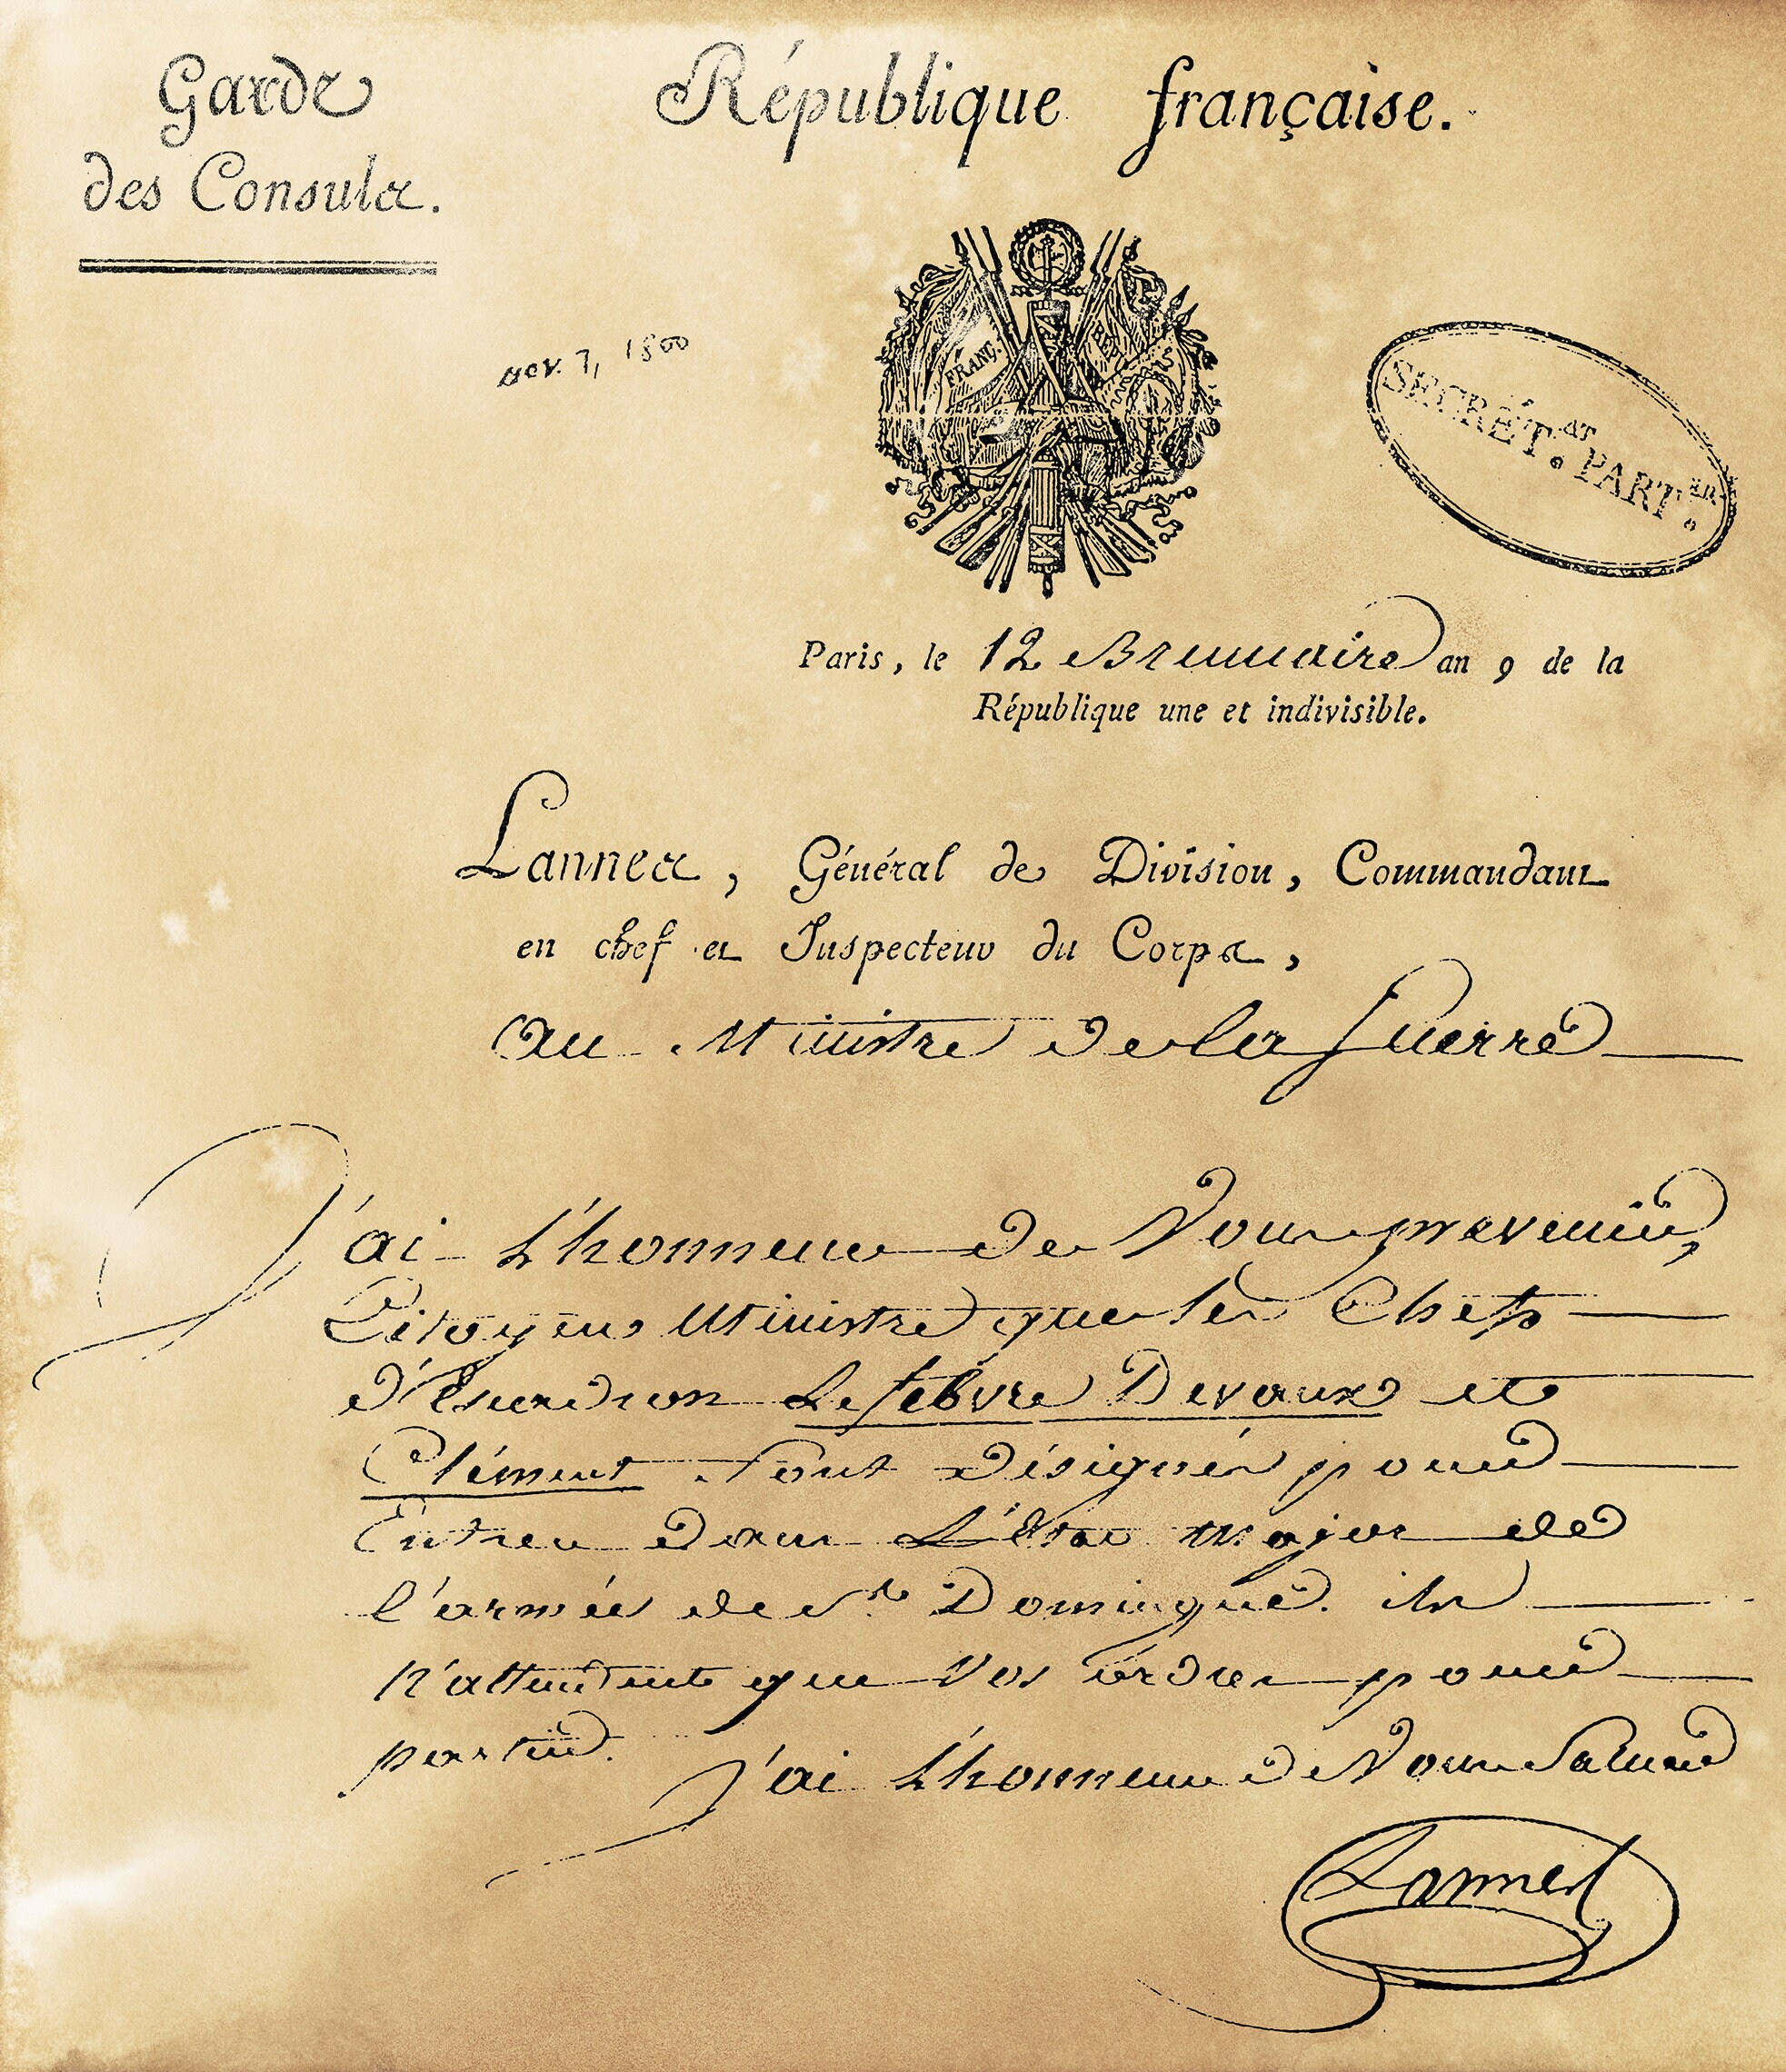 Garde
des Consuls.
République française.
nov. 7, 1800
FRANÇ.
REP.
SECRÉT.AT PART.ER
Paris, le 12 Brumaire an 9 de la
République une et indivisible.
Lannes, Général de Division, Commandant
en chef et Inspecteur du Corps,
au Ministre de la Guerre
J'ai L'honneur de Vous prevenir,
Citoyen Ministre que les Chefs
d'Escadron Lefebvre Devaux et
Clément Sont désignés pour
Entrer dans L'état major de
l'armée de St. Domingue. ils
n'attendent que Vos ordres pour
partir.
J'ai L'honneur de Vous Saluer
Lannes